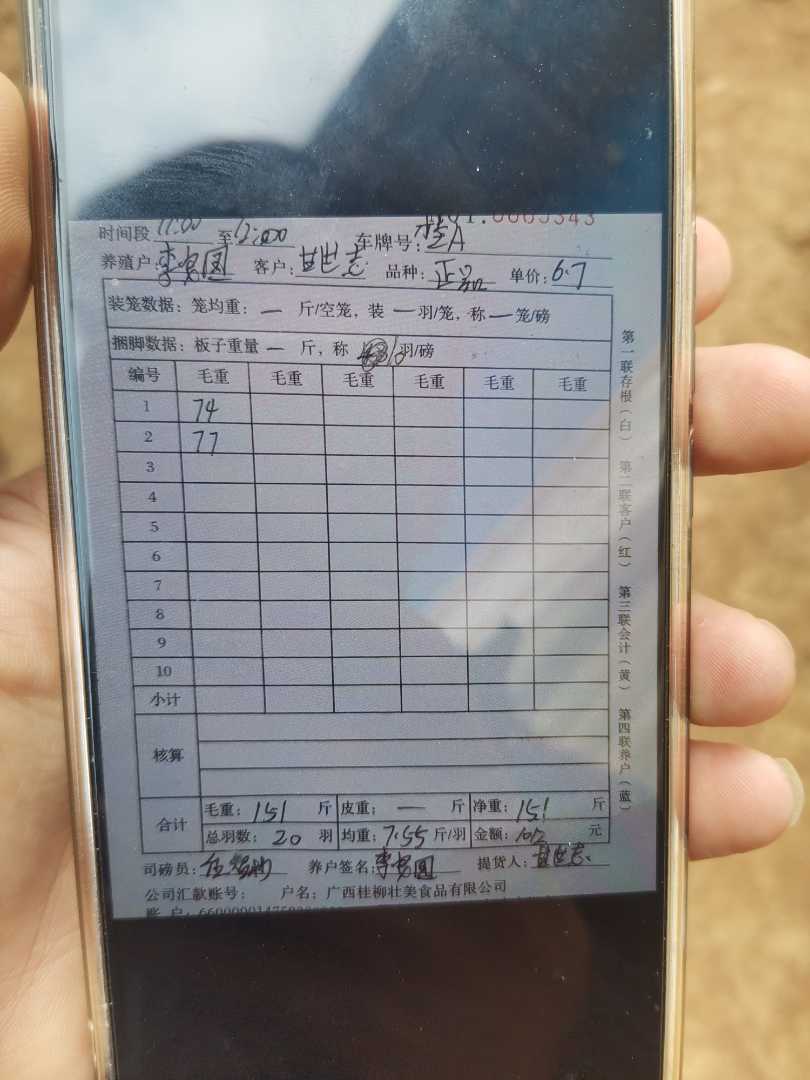 0065343
时间段 11:00 至 12:00 车牌号: 桂A
养殖户: 李 国 客户: 甘世志 品种: 正品 单价: 6.7
装笼数据: 笼均重: — 斤/空笼, 装 — 羽/笼, 称 — 笼/磅
捆脚数据: 板子重量 — 斤, 称 10 羽/磅
编号 毛重 毛重 毛重 毛重 毛重 毛重
1 74
2 77
3
4
5
6
7
8
9
10
小计
核算
合计 毛重: 151 斤 皮重: — 斤 净重: 151 斤
总羽数: 20 羽 均重: 7.55 斤/羽 金额: 1012 元
司磅员: 养户签名: 李 国 提货人: 甘世志
公司汇款账号: 户名: 广西桂柳壮美食品有限公司
账 户:
第一联存根(白) 第二联客户(红) 第三联会计(黄) 第四联养户(蓝)